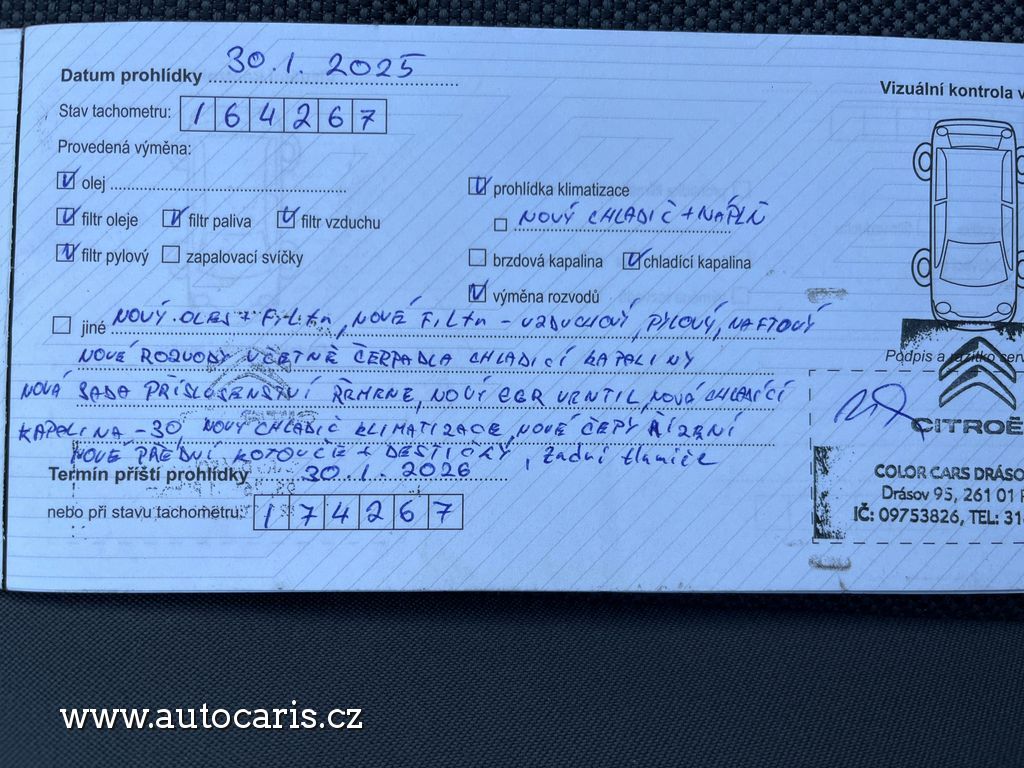 Datum prohlídky 30.1. 2025
Vizuální kontrola v
Stav tachometru: 164267
Provedená výměna:
olej
prohlídka klimatizace
filtr oleje filtr paliva filtr vzduchu
NOVÝ CHLADIČ + NÁPLŇ
filtr pylový zapalovací svíčky
brzdová kapalina chladící kapalina
výměna rozvodů
jiné NOVÝ OLEJ + FILTR, NOVÉ FILTR - VZDUCHOVÝ, PYLOVÝ, NAFTOVÝ
NOVÉ ROZVODY VČETNĚ ČERPADLA CHLADICÍ KAPALINY
NOVÁ SADA PŘÍSLUŠENSTVÍ ŘEMENE, NOVÝ EGR VENTIL, NOVÁ CHLADÍCÍ
KAPALINA -30, NOVÝ CHLADIČ KLIMATIZACE, NOVÉ ČEPY ŘÍZENÍ
NOVÉ PŘEDNÍ KOTOUČE + DESTIČKY, zadní tlumiče
Termín příští prohlídky 30.1. 2026
nebo při stavu tachometru: 174267
Podpis a razítko serv
CITROË
COLOR CARS DRÁSO
Drásov 95, 261 01 P
IČ: 09753826, TEL: 31
www.autocaris.cz